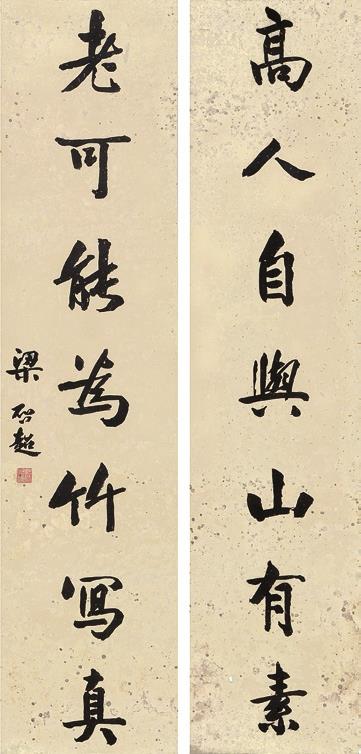 高人自與山有素
老可能為竹寫真
梁啟超